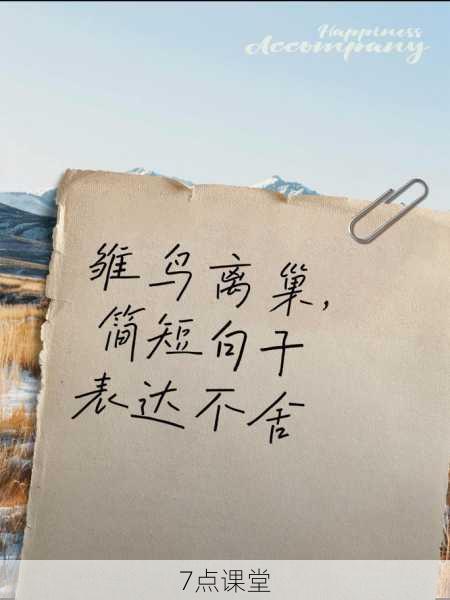 Happiness
Accompany
雏鸟离巢,
简短句子
表达不舍
7点课堂